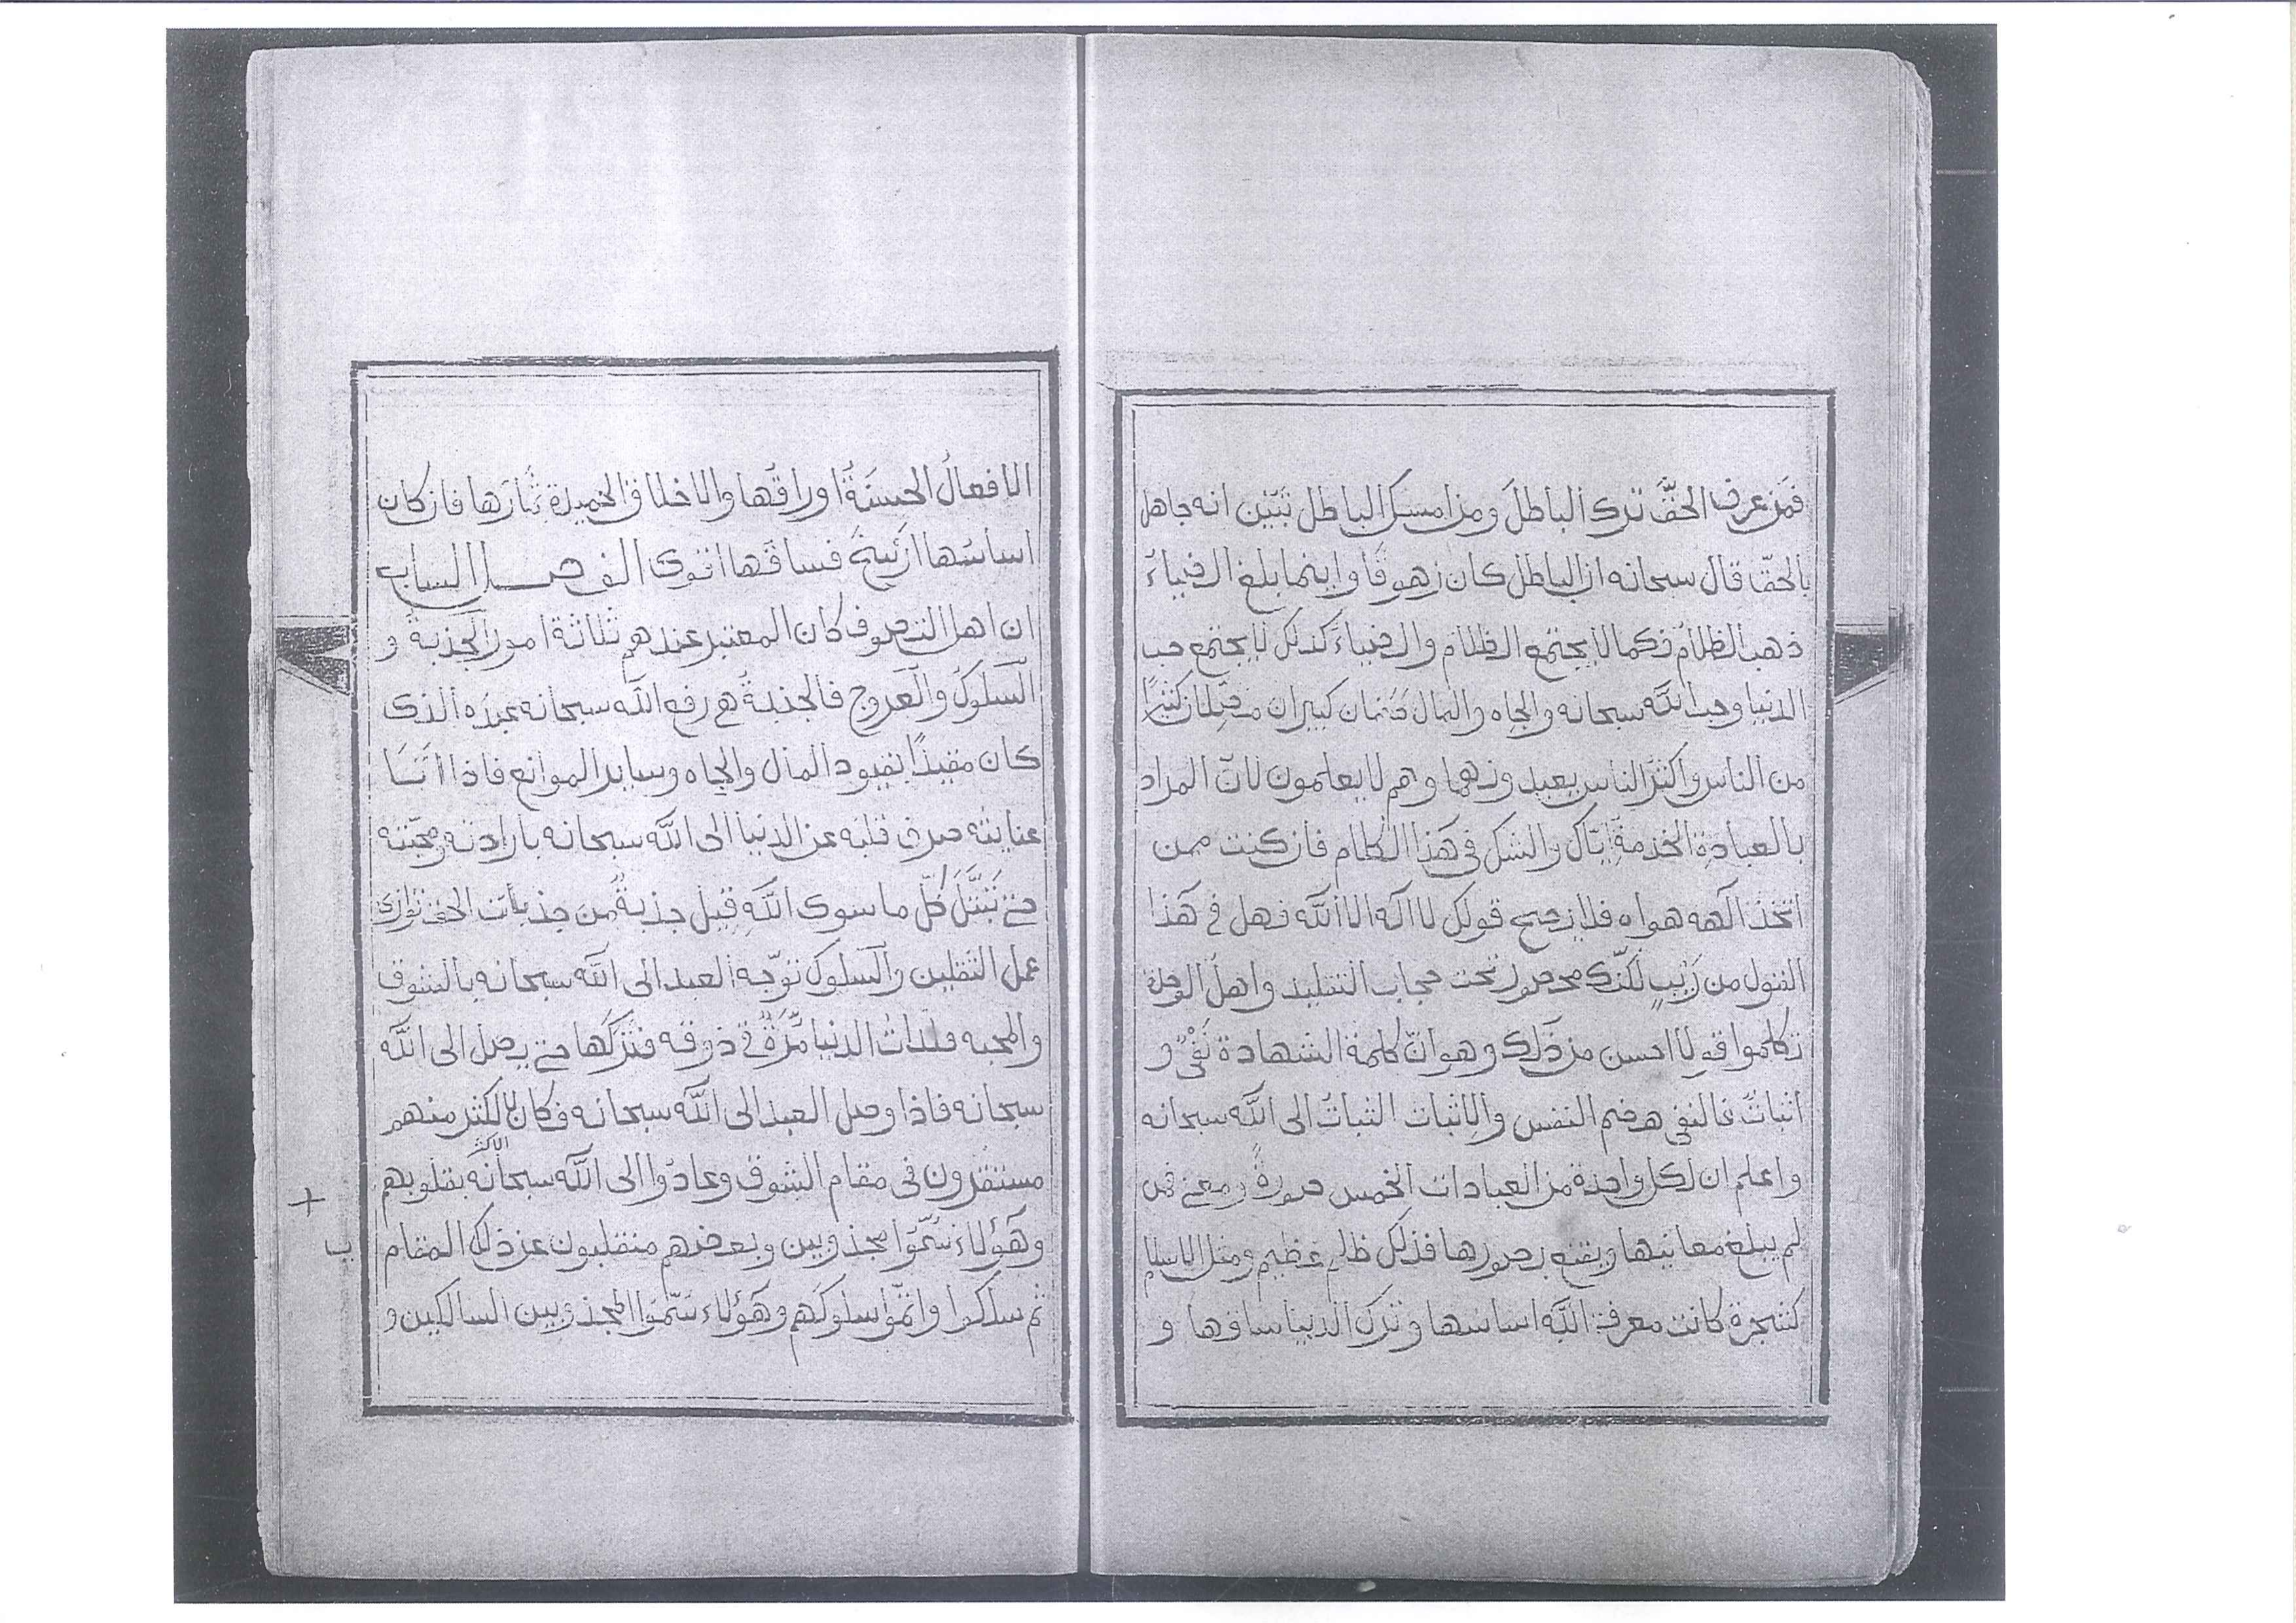 فمَن عرف الحقَّ ترك الباطلَ ومن امسك الباطل تبيّن انه جاهل
بالحقّ قال سبحانه ان الباطل كان زهوقًا واينما بلغ الضياءُ
ذهب الظلامُ فكما لا يجتمع الظلام والضياءُ كذلك لا يجتمع حب
الدنيا وحب الله سبحانه والجاه والمال صنمان كبيران مضلان كثيرًا
من الناس واكثرُ الناس يعبدونهما وهم لا يعلمون لانّ المراد
بالعبادةِ الخدمةُ اياك والشك فى هَذا الكلام فان كنت ممن
اتخذ آلهه هواه فلا يصح قولك لا اله الا الله فهل فى هَذا
القول من رَيْبٍ لكنّك محصور تحت حجاب التقليد واهلُ الوحدة
تكلموا قولا احسن من ذَلك وهو انّ كلمة الشهادة نَفْىٌ و
اثباتٌ فالنفى هضم النفس والاِثبات الثباتُ الى الله سبحانه
واعلم ان لكل واحدة من العبادات الخمس صورةً ومعنى فمن
لم يبلغ معانيها ويقنع بصورها فذلك ظلم عظيم ومثل الاسلام
كشجرة كانت معرفة الله اساسها وترك الدنيا ساقها و
الافعالُ الحسنَةُ اوراقُها والاخلاق الحميدة ثمارَها فان كان
اساسُها ارسخَ فساقُها اقوى الفصل السابع
ان اهل التصوف كان المعتبر عندهم ثلاثة امور الجذبةُ و
السّلوكُ والعروج فالجذبةُ هى رفع الله سبحانه عبدَه الذى
كان مقيدًا بقيود المال والجاه وساير الموانع فاذا
عنايته صرف قلبه عن الدنيا الى الله سبحانه بارادته ومحبّته
حتى تَبَتَّلَ كُلّ ما سوى الله قيل جذبةٌ من جذبات الحق توازى
عمل الثقلين والسلوك توجّه العبد الى الله سبحانه بالشوق
والمحبه فلذات الدنيا مُرَّةٌ فى ذوقه فتركَها حتى يصل الى الله
سبحانه فاذا وصل العبد الى الله سبحانه فكان الاكثر منهم
الاكثر
مستقرون فى مقام الشوق وعادوا الى الله سبحانه بقلوبهم
وهَؤُلاء سُمّوا مجذوبين وبعضهم منقلبون عن ذلك المقام
ب
ثم سلكوا واتمّوا سلوكهم وهَؤُلاء سُمّوا المجذوبين السالكين و